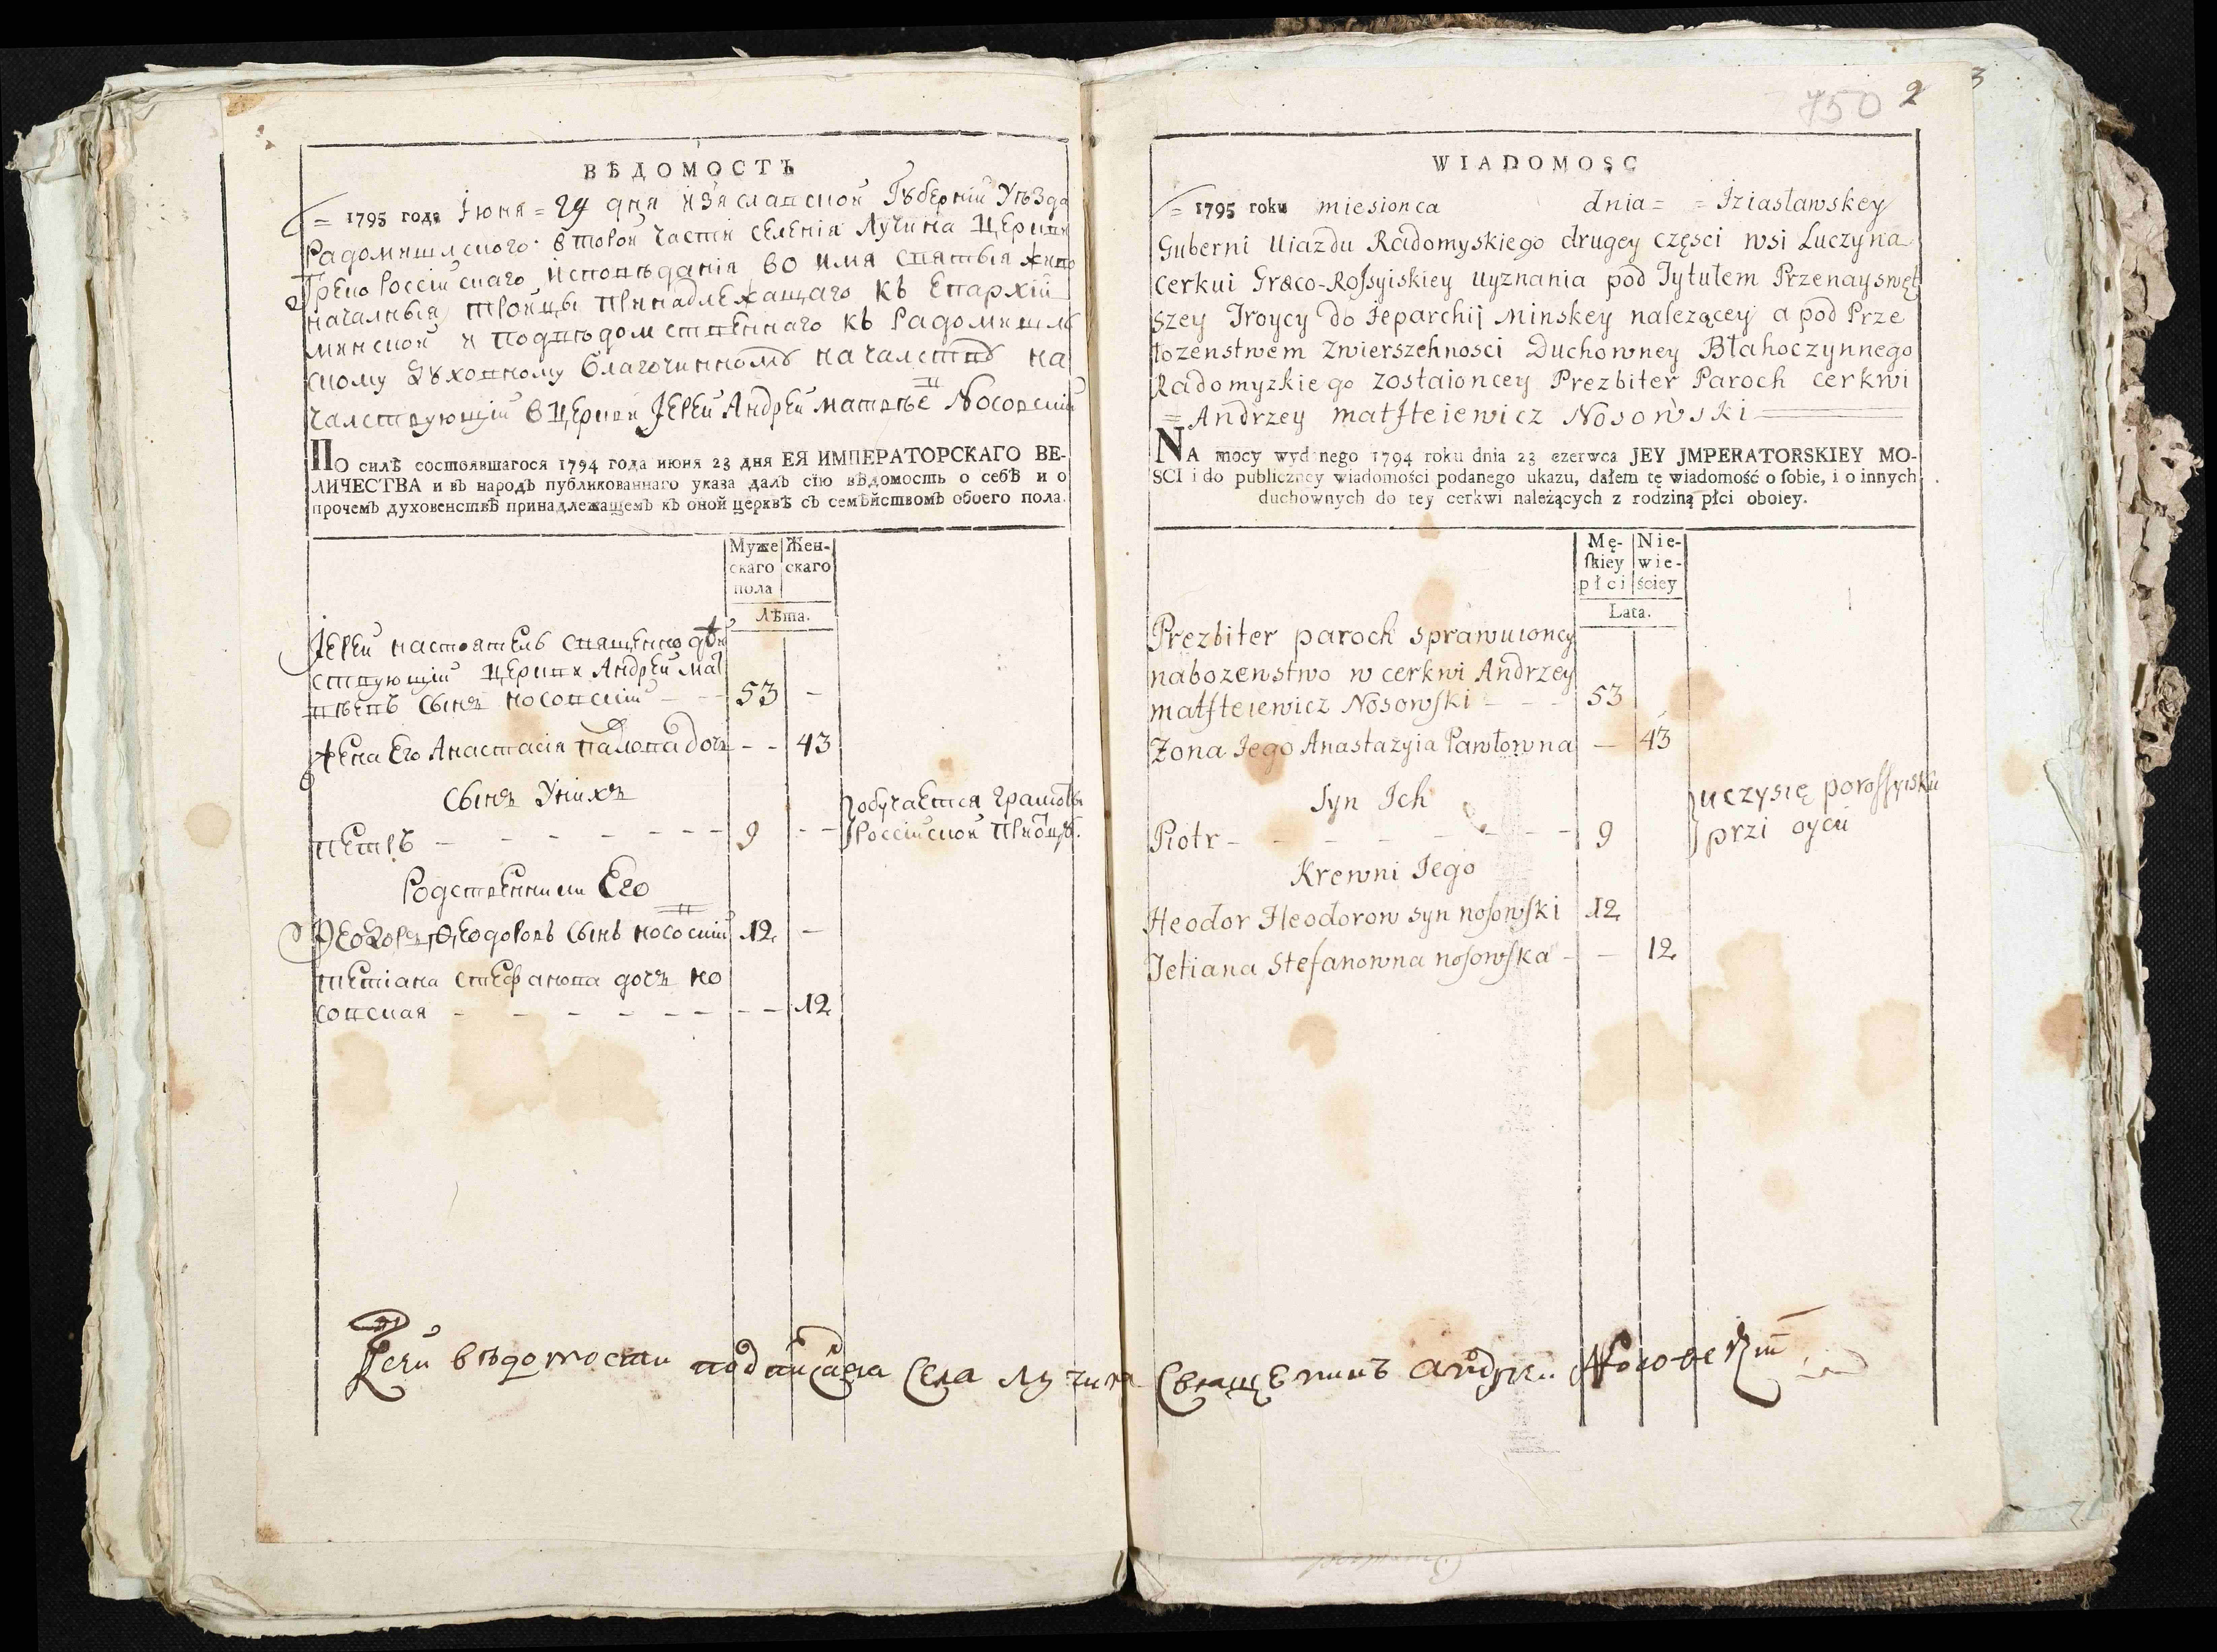 ВѢДОМОСТЬ
= 1795 года Іюня = 24 дня Изяславской Губерніи Уѣзда
Радомышлского второй части селенія Лучина Церкви
Греко Россійскаго исповѣданія во имя Святыя живо
началныя троицы принадлежащаго къ Епархіи
минской и подвѣдомственнаго къ Радомишл
скому Духовному благочинному началству на
чалствующій в Церкви Іерей Андрей матвѣев Носовскій
ПО силѣ состоявшагося 1794 года июня 23 дня ЕЯ ИМПЕРАТОРСКАГО ВЕ-
ЛИЧЕСТВА и въ народъ публикованнаго указа далъ сїю вѣдомость о себѣ и о
прочемъ духовенствѣ принадлежащемъ къ оной церквѣ съ семѣйствомъ обоего пола.
Муже Жен-
скаго скаго
пола
Лѣта.
Іерей настоятель священнодѣй
ствующій церкви Андрей мат
вѣевъ сынъ носовскій - - 53 -
жена Его Анастасія павлова дочь - - 43
Сынъ Унихъ
петръ - - - - - - - 9 - - обучается грамотѣ
Россійской приотцѣ.
Родственники Его
Ѳеодоръ Ѳеодоровъ сынъ носовскій 12 -
тетіана стефанова дочь но
совская - - - - - - - - 12
Сей вѣдомости подписался Села лучина Священникъ Андрей Носовскій
750 2
3
WIADOMOSC
= 1795 roku miesionca dnia = = Iziasławskey
Guberni Uiazdu Radomyskiego drugey części wsi Łuczyna
cerkui Græco-Roſsyiskiey uyznania pod Tytułem Przenayswęt
szey Troycy do Jeparchij Minskey nalezącey a pod Prze
łozenstwem Zwierszchnosci Duchowney Błahoczynnego
Radomyzkiego zostaioncey Prezbiter Paroch cerkwi
= Andrzey matſteiewicz Nosowski
NA mocy wydanego 1794 roku dnia 23 czerwca JEY JMPERATORSKIEY MO-
SCI i do publiczney wiadomości podanego ukazu, dałem tę wiadomość o ſobie, i o innych
duchownych do tey cerkwi należących z rodziną płci oboiey.
Mę- Nie-
ſkiey wie-
płci ściey
Lata.
Prezbiter paroch sprawuioncy
nabozenstwo w cerkwi Andrzey
matſteiewicz Nosowſki - - - 53
Zona Jego Anastazyia Pawłowna - 43
Syn Ich
uczysię poroſſyisku
Piotr - - - - - - - 9 przi oycu
Krewni Jego
Heodor Heodorow syn noſowſki 12
Tetiana Stefanowna noſowſka - - 12